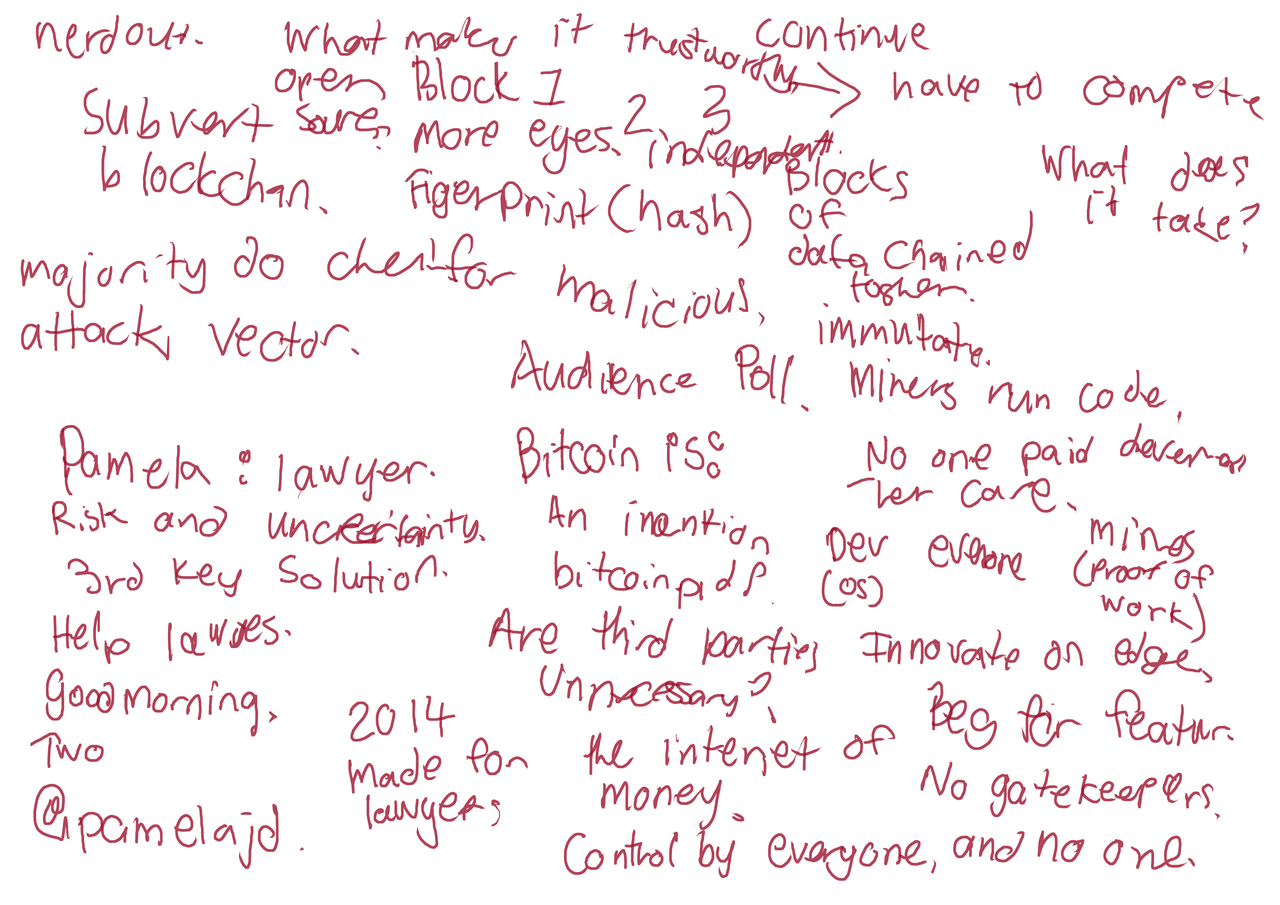 nerdout.
What makes it trustworthy
continue
have to compete
open source,
Block 1 2 3
Subvert
blockchan.
more eyes.
independent.
Figerprint (hash)
Blocks
of
data chained
What does
it take?
majority do for malicious,
attack vector.
immutate.
Audience Poll.
Miners run code,
Pamela: lawyer.
Risk and uncertainty.
3rd key solution.
Help
Good morning,
Two
@pamelajd.
2014
made for
lawyers
Bitcoin is:
An
bitcoin pdf
Are third parties
Unnecesary?
the internet of
money.
Control by everyone, and no one.
No one paid
care.
Dev everone
(OS)
Mines
(proof of
work)
Innovate on edge,
Beg for featur.
No gatekeepers.